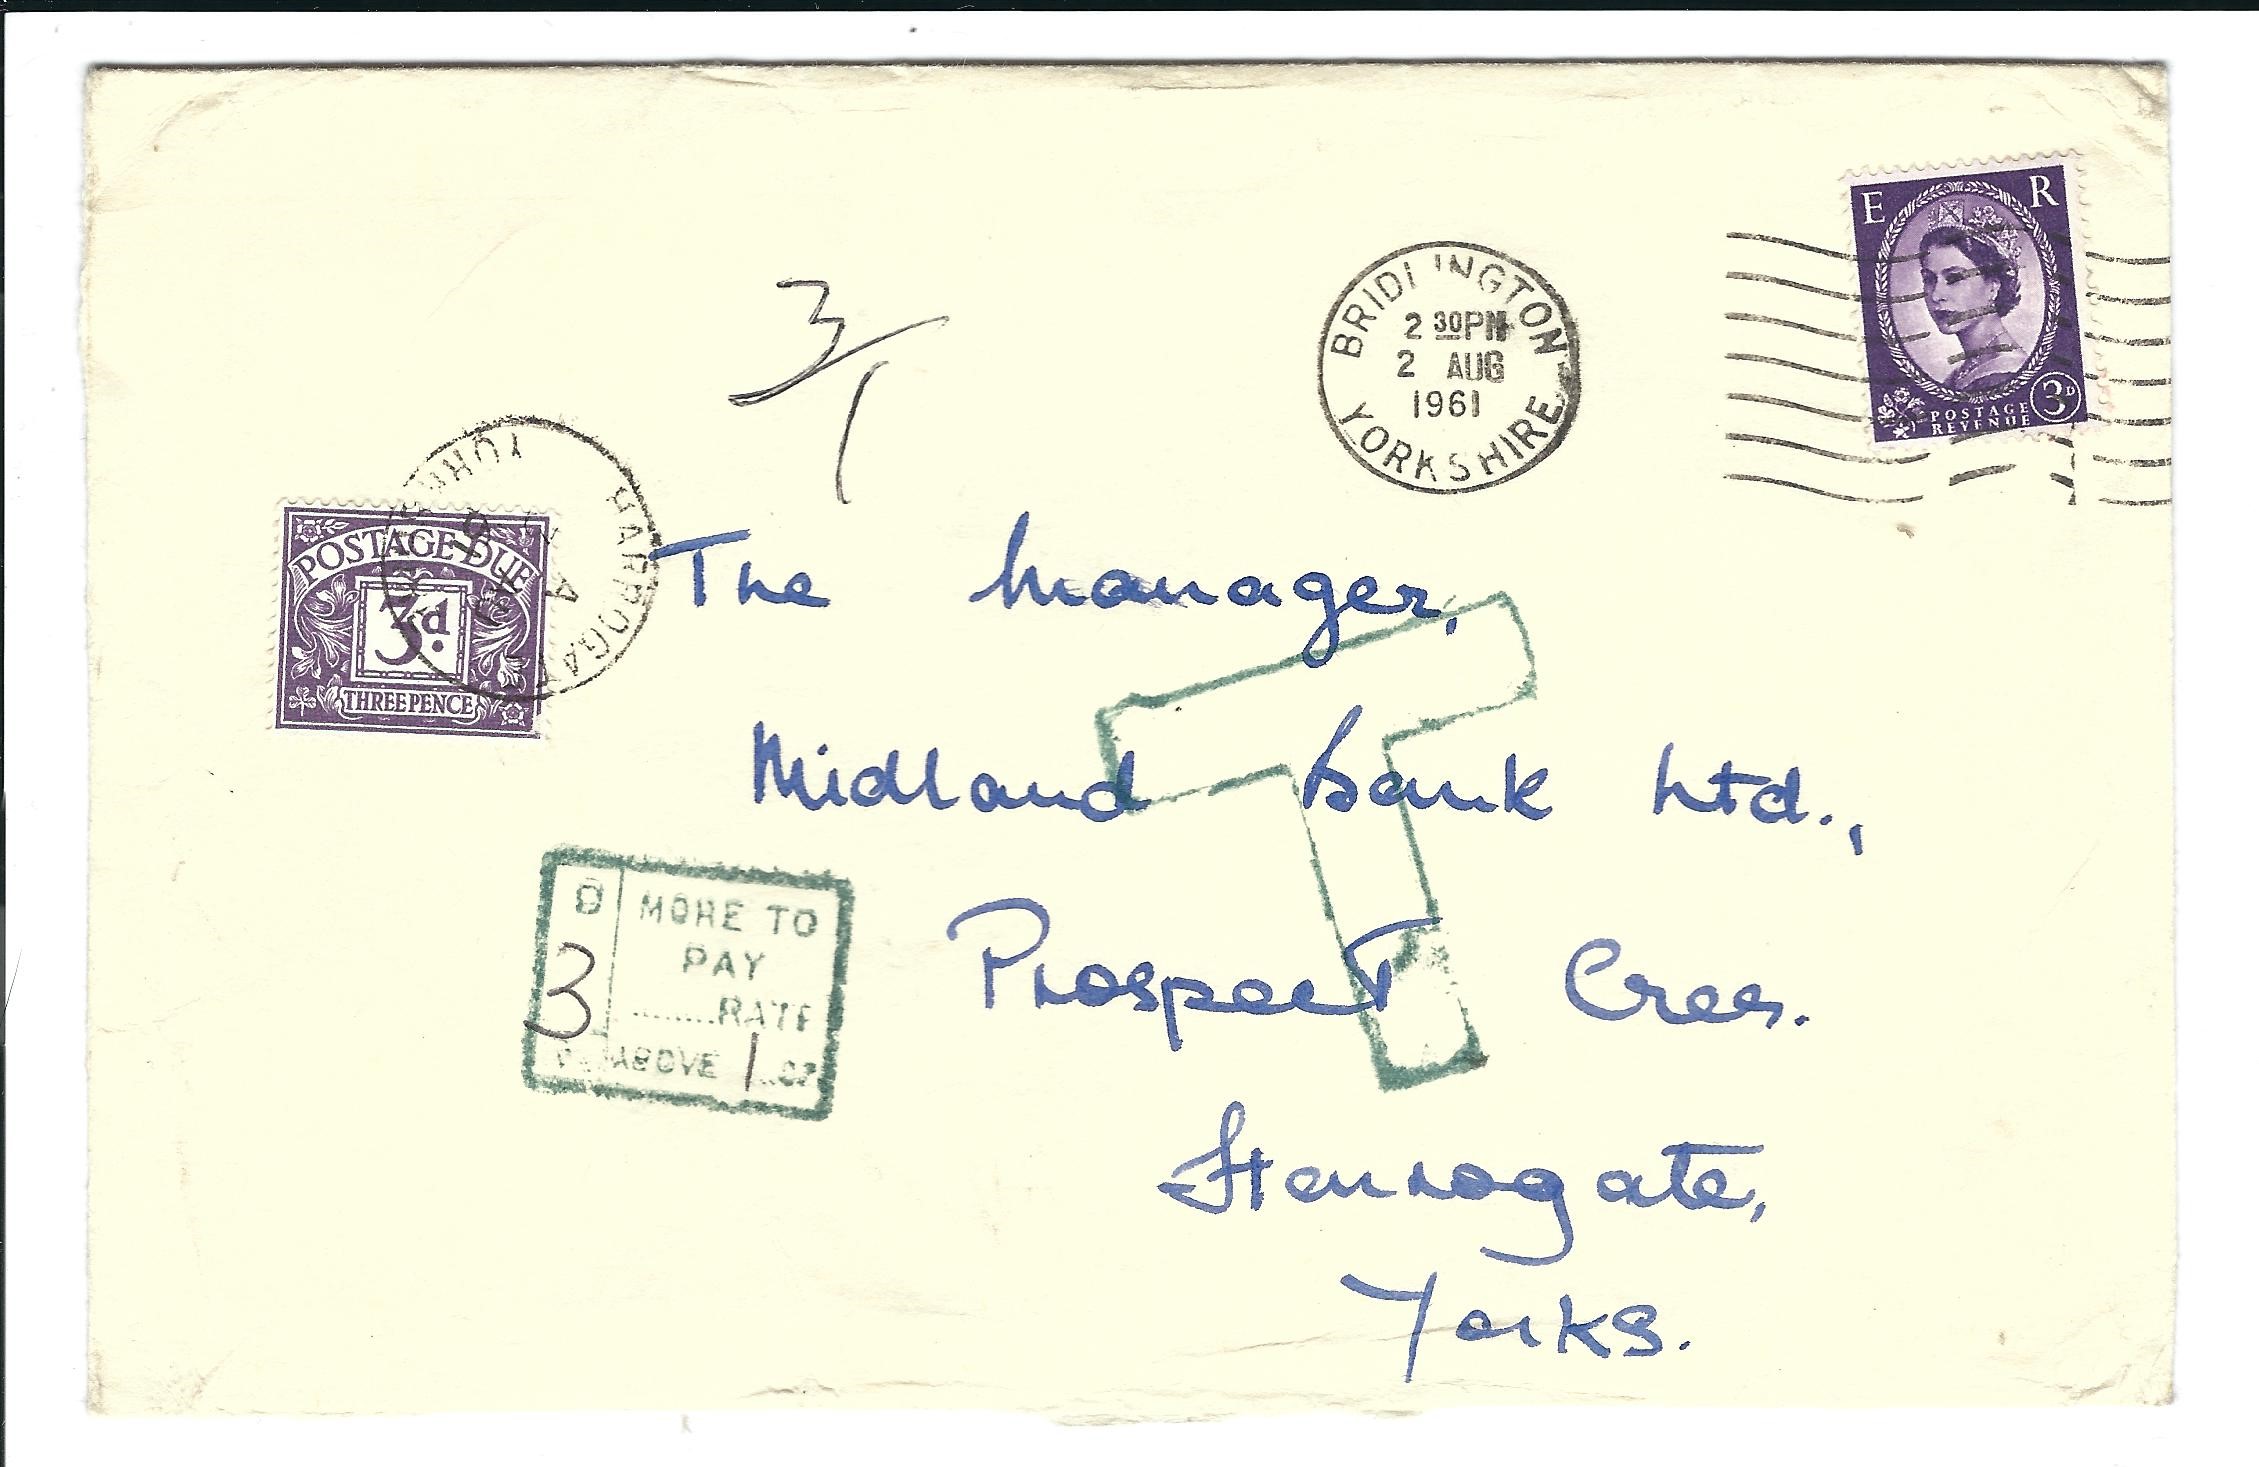 E R
POSTAGE
REVENUE
3D
BRIDLINGTON
2 30PM
2 AUG
1961
YORKSHIRE
3/1
HARROGATE
POSTAGE DUE
3d.
THREEPENCE
The Manager,
Midland Bank Ltd.,
Prospect Cres.
Harrogate,
Yorks.
T
D
3
MORE TO
PAY
........RATE
ABOVE 1 OZ